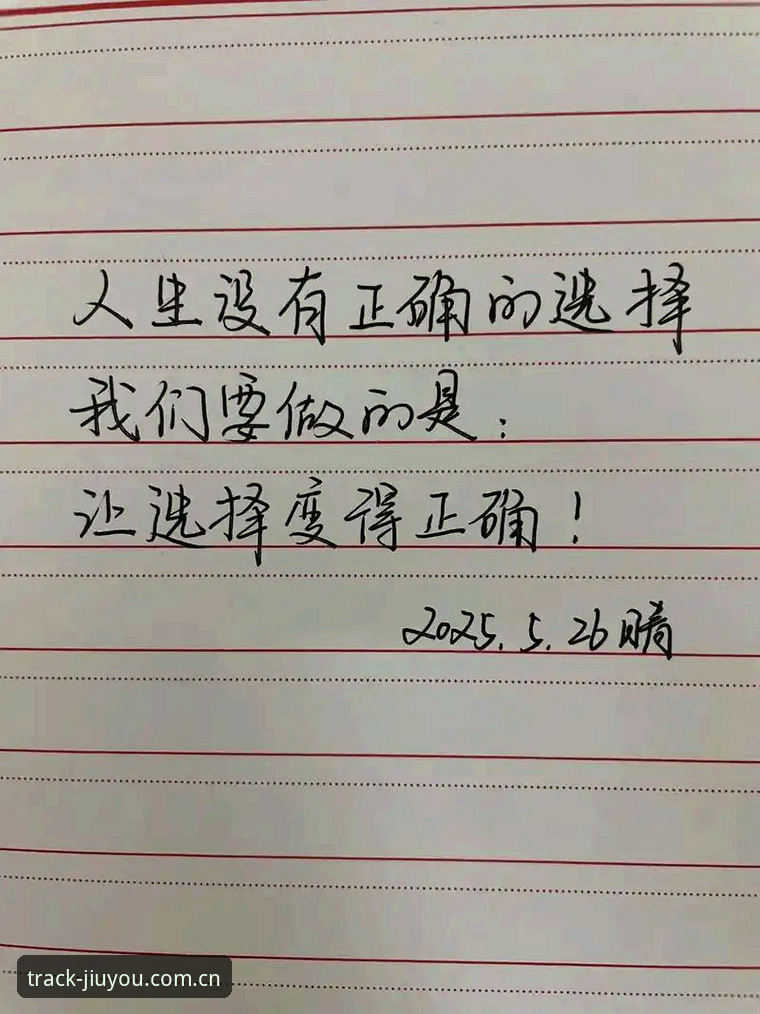 人生没有正确的选择
我们要做的是：
让选择变得正确！
2025.5.26 晴
track-jiuyou.com.cn